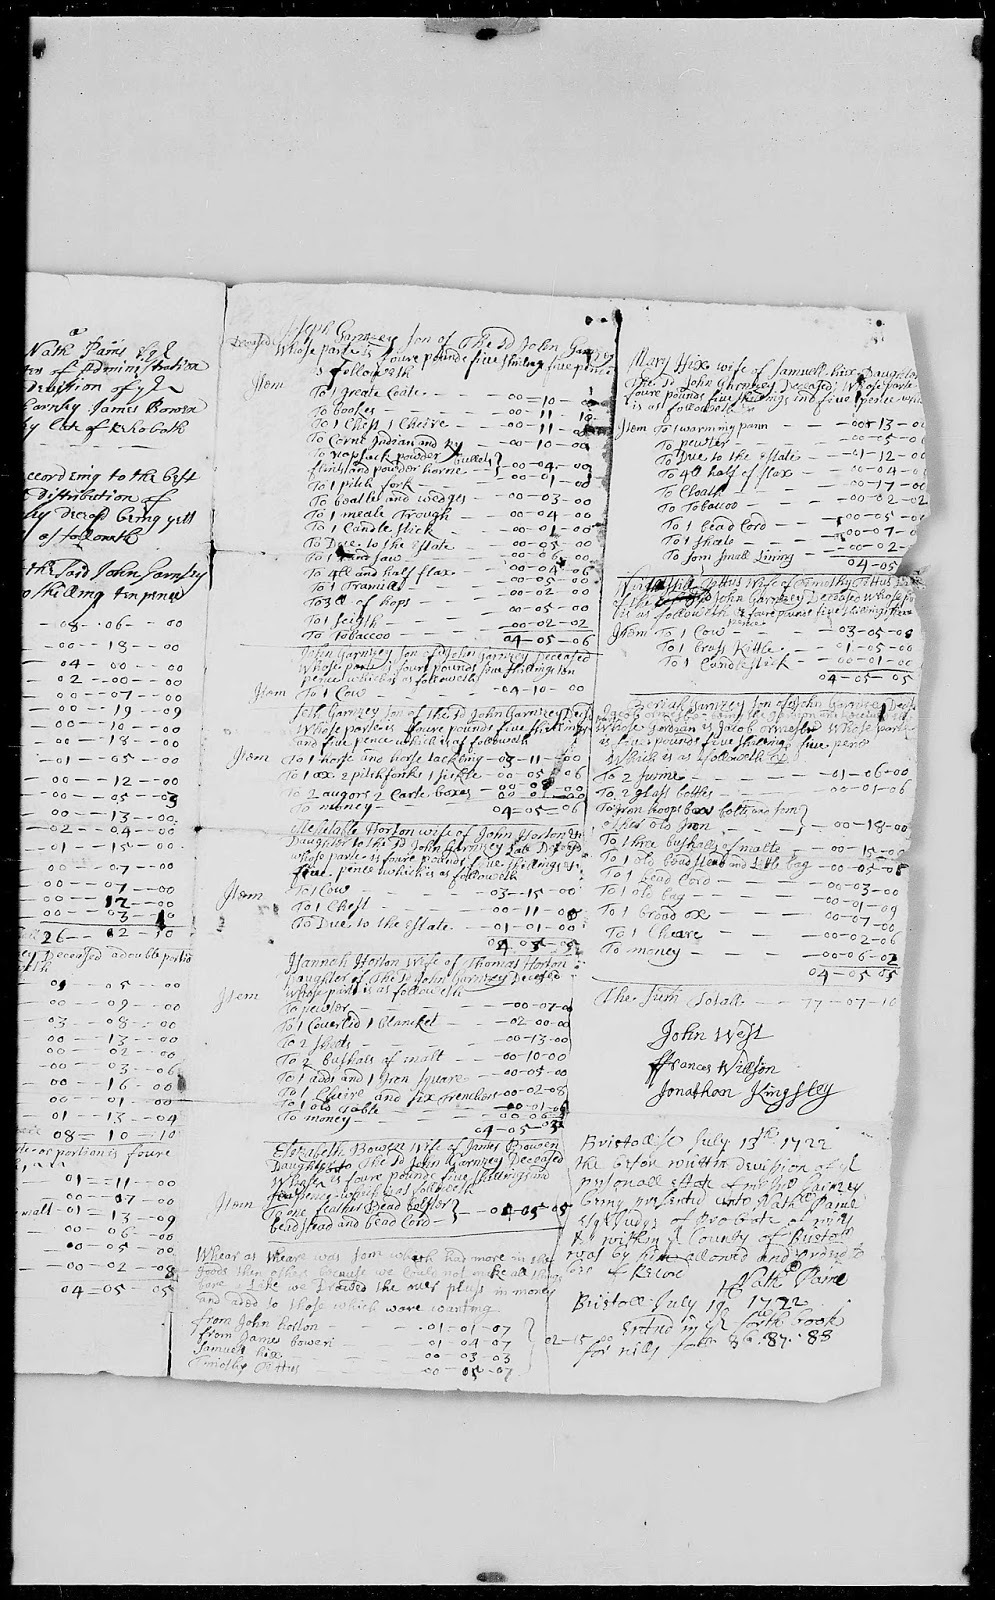 Nath Paine Esqr
of Administration
Devission of ye
Garnsey James Bowen
late of Rehoboth
according to the best
distribution of
Decesd being yett
as followeth
the said John Garnsey
shilling ten pence
08--06--00
00--18--00
04--00--00
02--00--00
00--07--00
00--19--09
00--10--00
00--18--00
01--05--00
00--12--00
00--05--03
00--13--00
02--04--00
01--15--00
00--07--00
00--07--00
00--12--00
00--03--10
26--12--10
Deceased a double portio
01--05--00
00--09--00
03--08--00
00--13--00
00--02--00
00--03--06
00--16--00
00--01--00
01--13--04
08=10=10
or portion is foure
01=11=00
00--07--00
malt-01=13-09
00--06--00
00--05--00
00--02--08
04=05--05
Joseph Garnzey son of The sd John Garnzey
Deceased Whose parte is foure pounds five shillings five pence
is as followeth
Item To 1 Greate Coate -- 00--10--00
To bookes -- 00--11--10
To 1 Chest 1 Cheire -- 00--11--00
To Corne Indian and Ry -- 00--10--00
To Knapsack powder bullets
flints and powder horne -- 00--04--00
To 1 pitch fork -- 00--01--00
To beatle and wedges -- 00--03--00
To 1 meale Trough -- 00--04--00
To 1 Candle stick -- 00--01--00
To Due to the Estate -- 00--05--00
To 1 hand saw -- 00--06--00
To 4ll and half flax -- 00--04--06
To 1 Tramiel -- 00--05--00
To 3ll of hops -- 00--02--00
To 1 seigth -- 00--05--00
To Tobaccoo -- 00--02--02
04--05--06
John Garnzey son of John Garnzey Deceased
Whose parte is foure pounds five shillings ten
pence which is as followeth
Item To 1 Cow -- 04-10--00
Seth Garnzey son of the sd John Garnzey Decesd
Whose parte is foure pounds five shillings
and five pence which is as followeth
Item To 1 horse and horse tackling -- 03-11--00
To 1 ox 2 pitchforks 1 sickle -- 00-05-06
To 2 augors 2 Carte boxes -- 00-08-00
To money -- 00-01-00
04-05-06
Mehitable Horton wife of John Horton
Daughter to the sd John Garnzey Late Decesd
whose parte is foure pounds five shillings
five pence which is as followeth
Item To 1 Cow -- 03-15-00
To 1 Chest -- 00-11-00
To Due to the Estate -- 01-01-00
04 05 05
Hannah Horton Wife of Thomas Horton
Daughter of The sd John Garnzey Deceased
Whose part is as followeth
Item To pewter -- 00-07-0
To 1 Coverlid 1 blancket -- 02-00-00
To 2 sheets -- 00-13-00
To 2 bushals of malt -- 00-10-00
To 1 adds and 1 Iron Square -- 00-05-00
To 1 Chaire and six Trenchers 00-02-08
To 1 old table -- 00-01-06
To money -- 00 06
04-05-03
Elizabeth Bowen Wife of James Bowen
Daughter to The sd John Garnzey Deceased
Whose is foure pounds five shillings and
five pence which is as followeth
Item To one feather Bead bolster
beadstead and bead Cord -- 04 05 05
Whear as theare was som which had more in the
Goods then others because we Could not make all things
Like we proved the over pluss in money
and aded to those which ware wanting
from John horton -- 01-01-07
from James bowen -- 01 04 07
Samuel hix -- 00 03 03
Timothy Tittus -- 00 05-07
02-15 00
Mary Hix wife of Samuell hix Daughter
the sd John Garnzey Deceased Whose parte
foure pounds five shillings and five pence
is as followeth
Item To 1 warming pann -- 00-13-0
To pewter -- 00-05-0
To Due to the Estate -- 01-12-00
To 4ll half of flax -- 00-04-0
To Cloath -- 00-17-00
To Tobaccoo -- 00-02-02
To 1 bead Cord -- 00-05-0
To 1 shoole -- 00-07-0
To som Small Lining -- 00-02-
04-05
Tittus Wife of Timothy Tittus
of the sd John Garnzey Deceased whose
is as followeth is foure pounds five shillings five
pence
Item To 1 Cow -- 03-05-00
To 1 brass Kittle -- 01-05-00
To 1 Candlestick -- 00-01-00
04-05-05
Garnzey son of John Garnzey Decesd
Whose Gardian is Jacob Whose parte
is foure pounds five shillings five pence
Which is as followeth
To 2 -- 01-06-00
To 2 glass bottles -- 00-01-06
To Iron hoops box bolts and som
other old Iron -- 00-18-00
To three bushals of malte -- 00-15-00
To 1 old beadstead and Little bag -- 00-05-06
To 1 bead Cord -- 00-03-00
To 1 old bag -- 00-01-09
To 1 broad ox -- 00-07-00
To 1 Cheare -- 00-02-06
To money -- 00-06-02
04-05 05
The Sum Totall -- 77-07-10
John West
ffrances Willson
Jonathan Kingsley
Bristoll sc July 13th 1722
the before written devission of ye
personall estate of
being presented unto Nathll Paine
Esqr Judge of Probate of wills
&c within ye County of Bristoll
was by him allowed and ordred to
be of Record
Nathll Paine
Bristoll July 19th 1722
Entred in ye fourth book
for wills folio 86. 87. 88